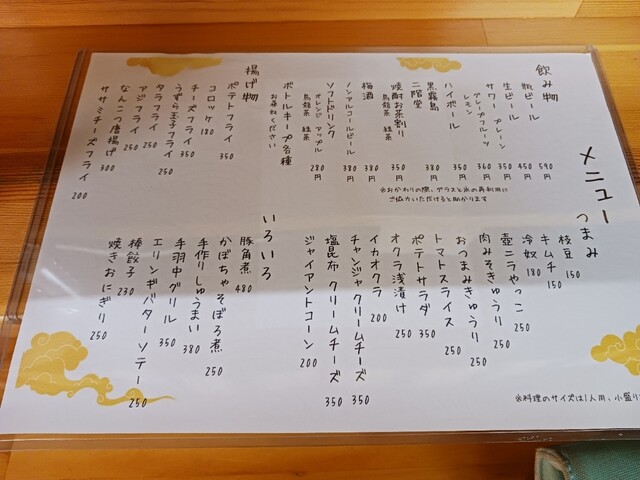 メニュー
飲み物
瓶ビール 590円
生ビール 450円
サワー プレーン 350円
グレープフルーツ
レモン 360円
ハイボール 350円
黒霧島 380円
二階堂
焼酎お茶割り 350円
烏龍茶 緑茶
梅酒 380円
ノンアルコールビール 380円
ソフトドリンク 280円
オレンジ アップル
烏龍茶 緑茶
ボトルキープ各種
お尋ねください
※おかわりの際、グラスと氷の再利用に
ご協力いただけると助かります
揚げ物
ポテトフライ 350
コロッケ 180
チーズフライ 350
うずら玉子フライ 250
タラフライ 250
アジフライ 250
なんこつ唐揚げ 300
ササミチーズフライ 200
つまみ
枝豆 150
キムチ 150
冷奴 180
壺ニラやっこ 250
肉みそきゅうり 250
おつまみきゅうり 250
トマトスライス 250
ポテトサラダ 350
オクラ浅漬け 250
イカオクラ 200
チャンジャクリームチーズ 350
塩昆布クリームチーズ 350
ジャイアントコーン 200
いろいろ
豚角煮 480
かぼちゃそぼろ煮 250
手作りしゅうまい 380
手羽中グリル 350
エリンギバターソテー 250
棒餃子 230
焼きおにぎり 250
※料理のサイズは1人用、小盛り